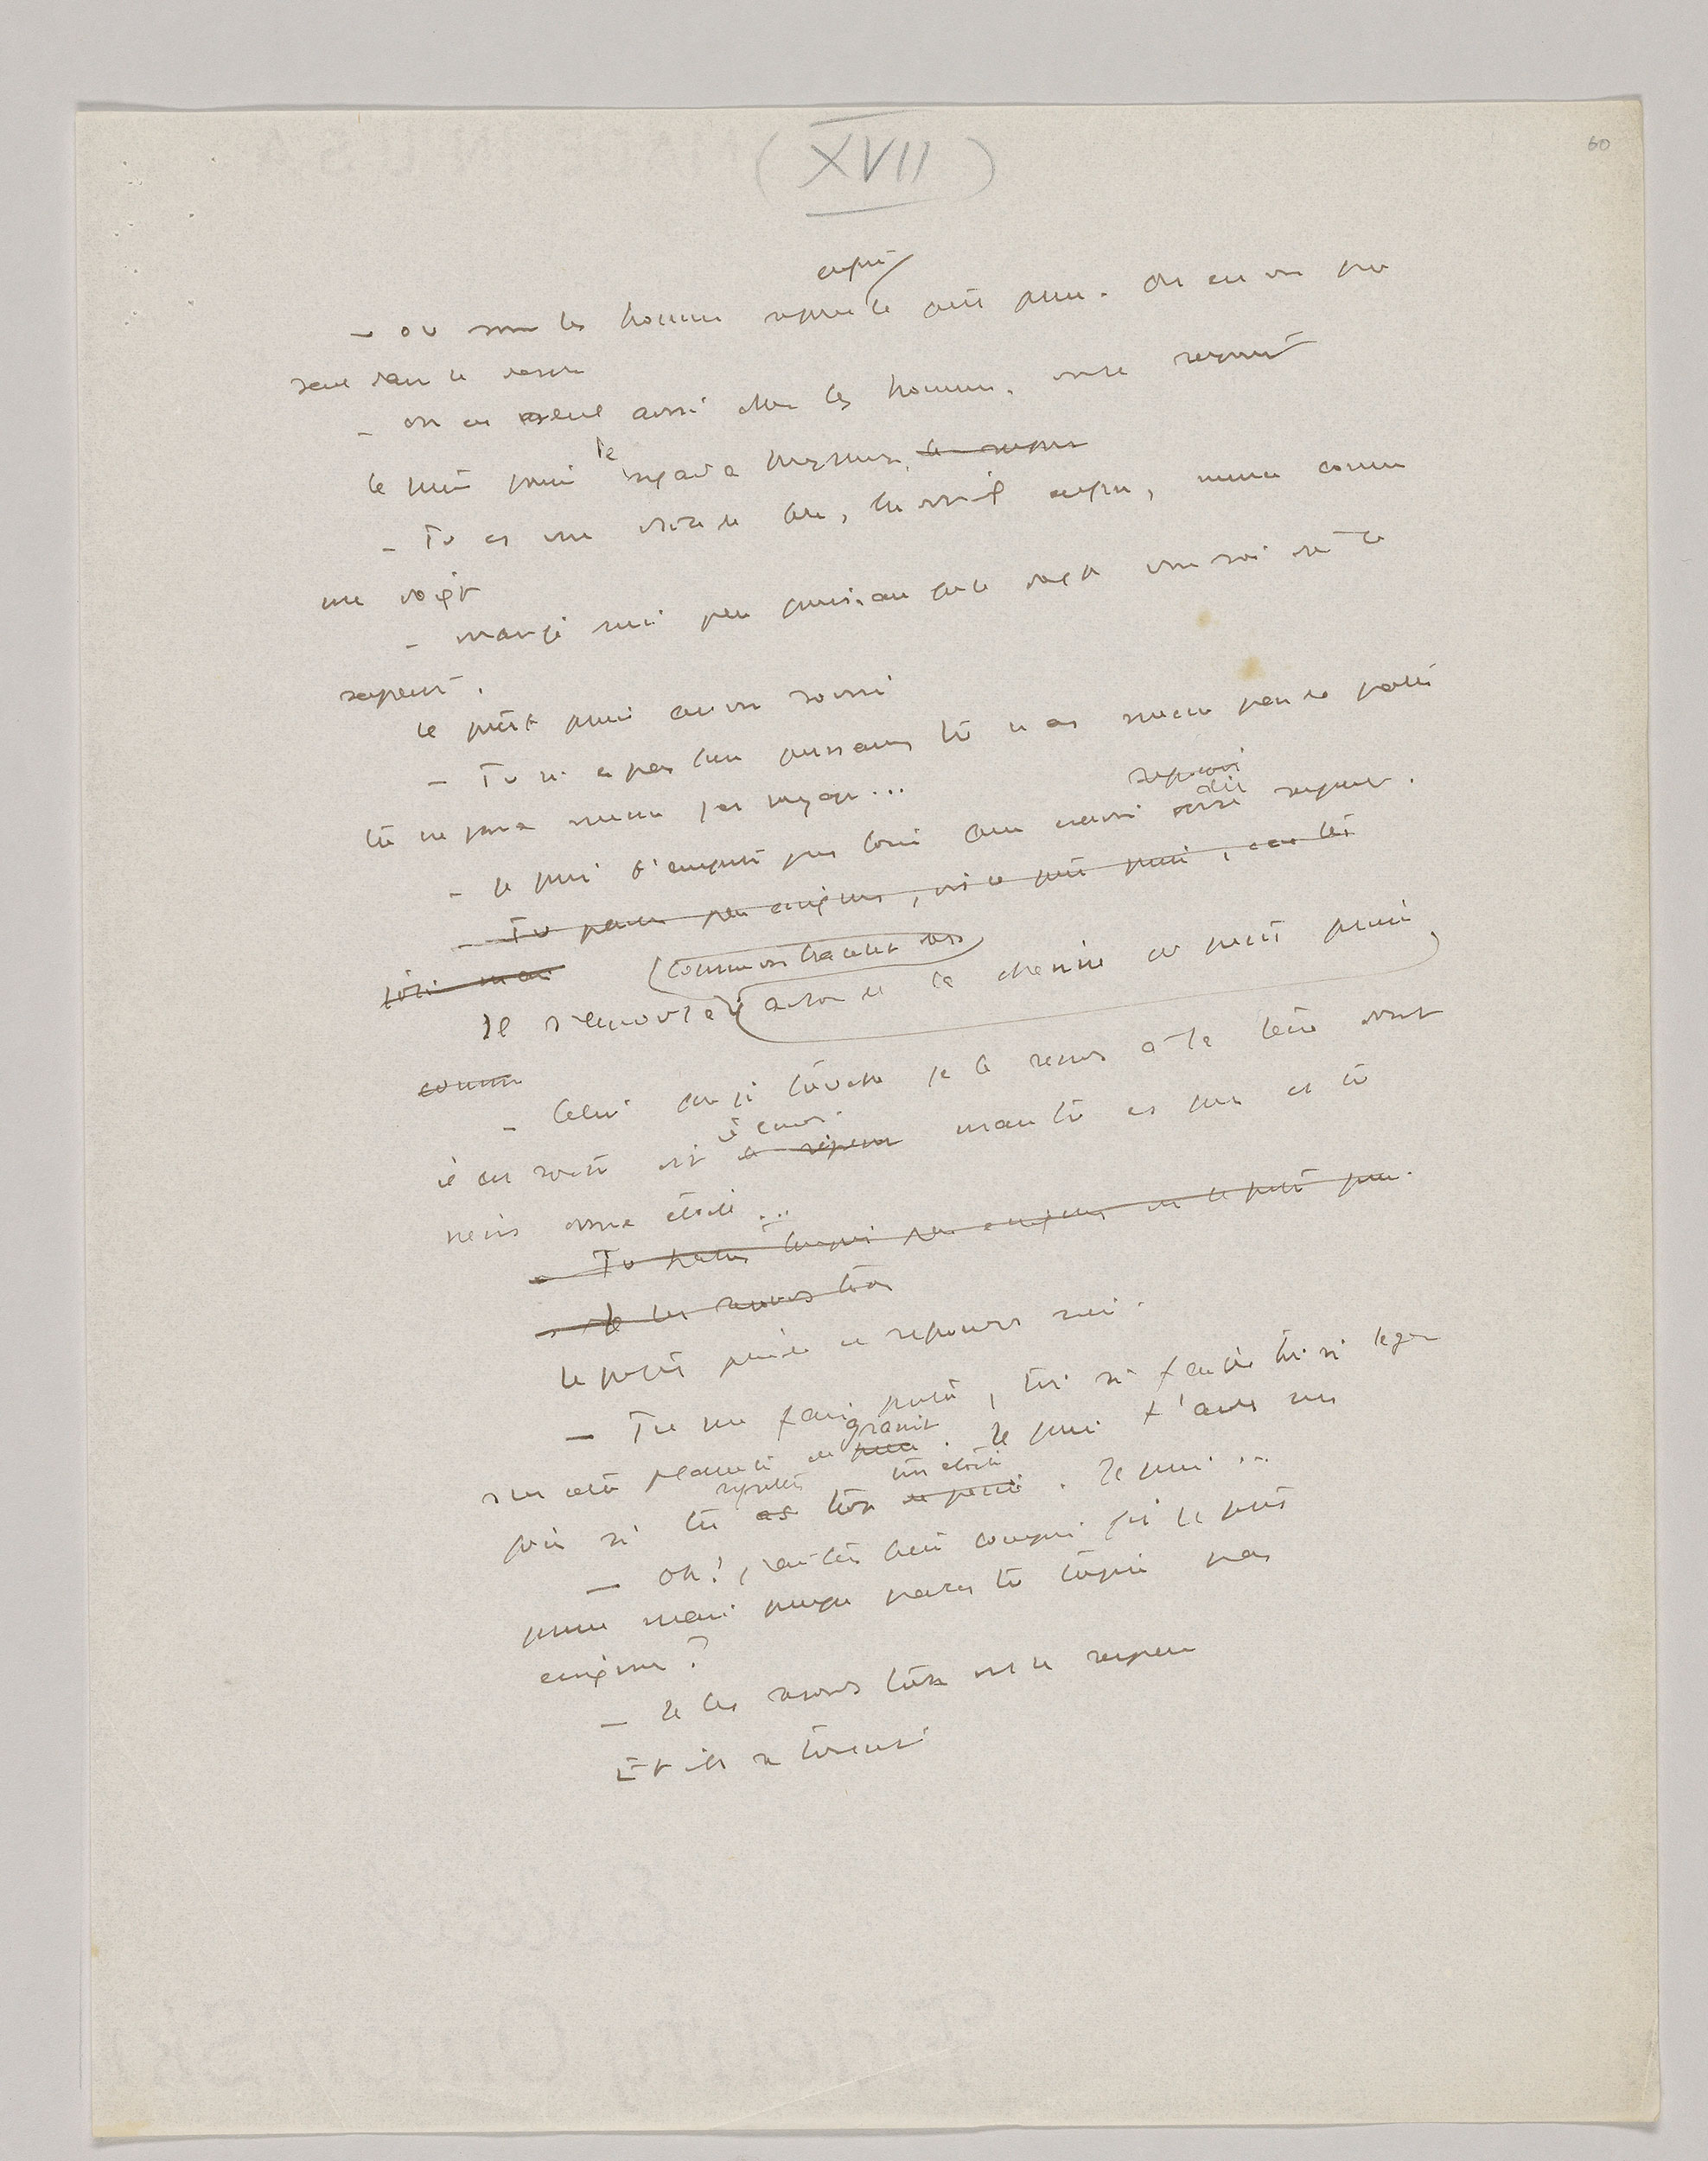 (XVII)
60
enfin
- où sont les hommes reprit le petit prince. On est un peu
seul dans le desert
- on est seul aussi chez les hommes, dit le serpent
le petit prince le regarda longtemps, le serpent
- Tu es une drole de bete, lui dit-il enfin, mince comme
un doigt
- mais je suis plus puissant que le doigt d'un roi dit le
serpent.
le petit prince eut un sourire
- Tu n'es pas bien puissant tu n'as meme pas de pattes
tu ne peux meme pas voyager...
- Je puis t'emporter plus loin
dit serpent.
- Tu parles par enigmes, dit le petit prince,
comme un bracelet d'or
Il s'enroula autour de la cheville du petit prince
comme
- Celui que je touche je le rends à la terre dont
il est sorti dit mais tu es pur et tu
viens d'une étoile...
- Tu parles toujours par enigmes dit le petit prince.
- Je les resous toutes
le petit prince ne repondit rien.
- Tu me fais pitié, toi si faible toi si leger
sur cette planete de granit. Je puis t'aider un
jour si tu regrettes trop ton etoile. Je puis...
- Oh! j'ai tres bien compris fit le petit
prince mais pourquoi parles tu toujours par
enigmes?
- Je les resous toutes dit le serpent
Et ils se turent